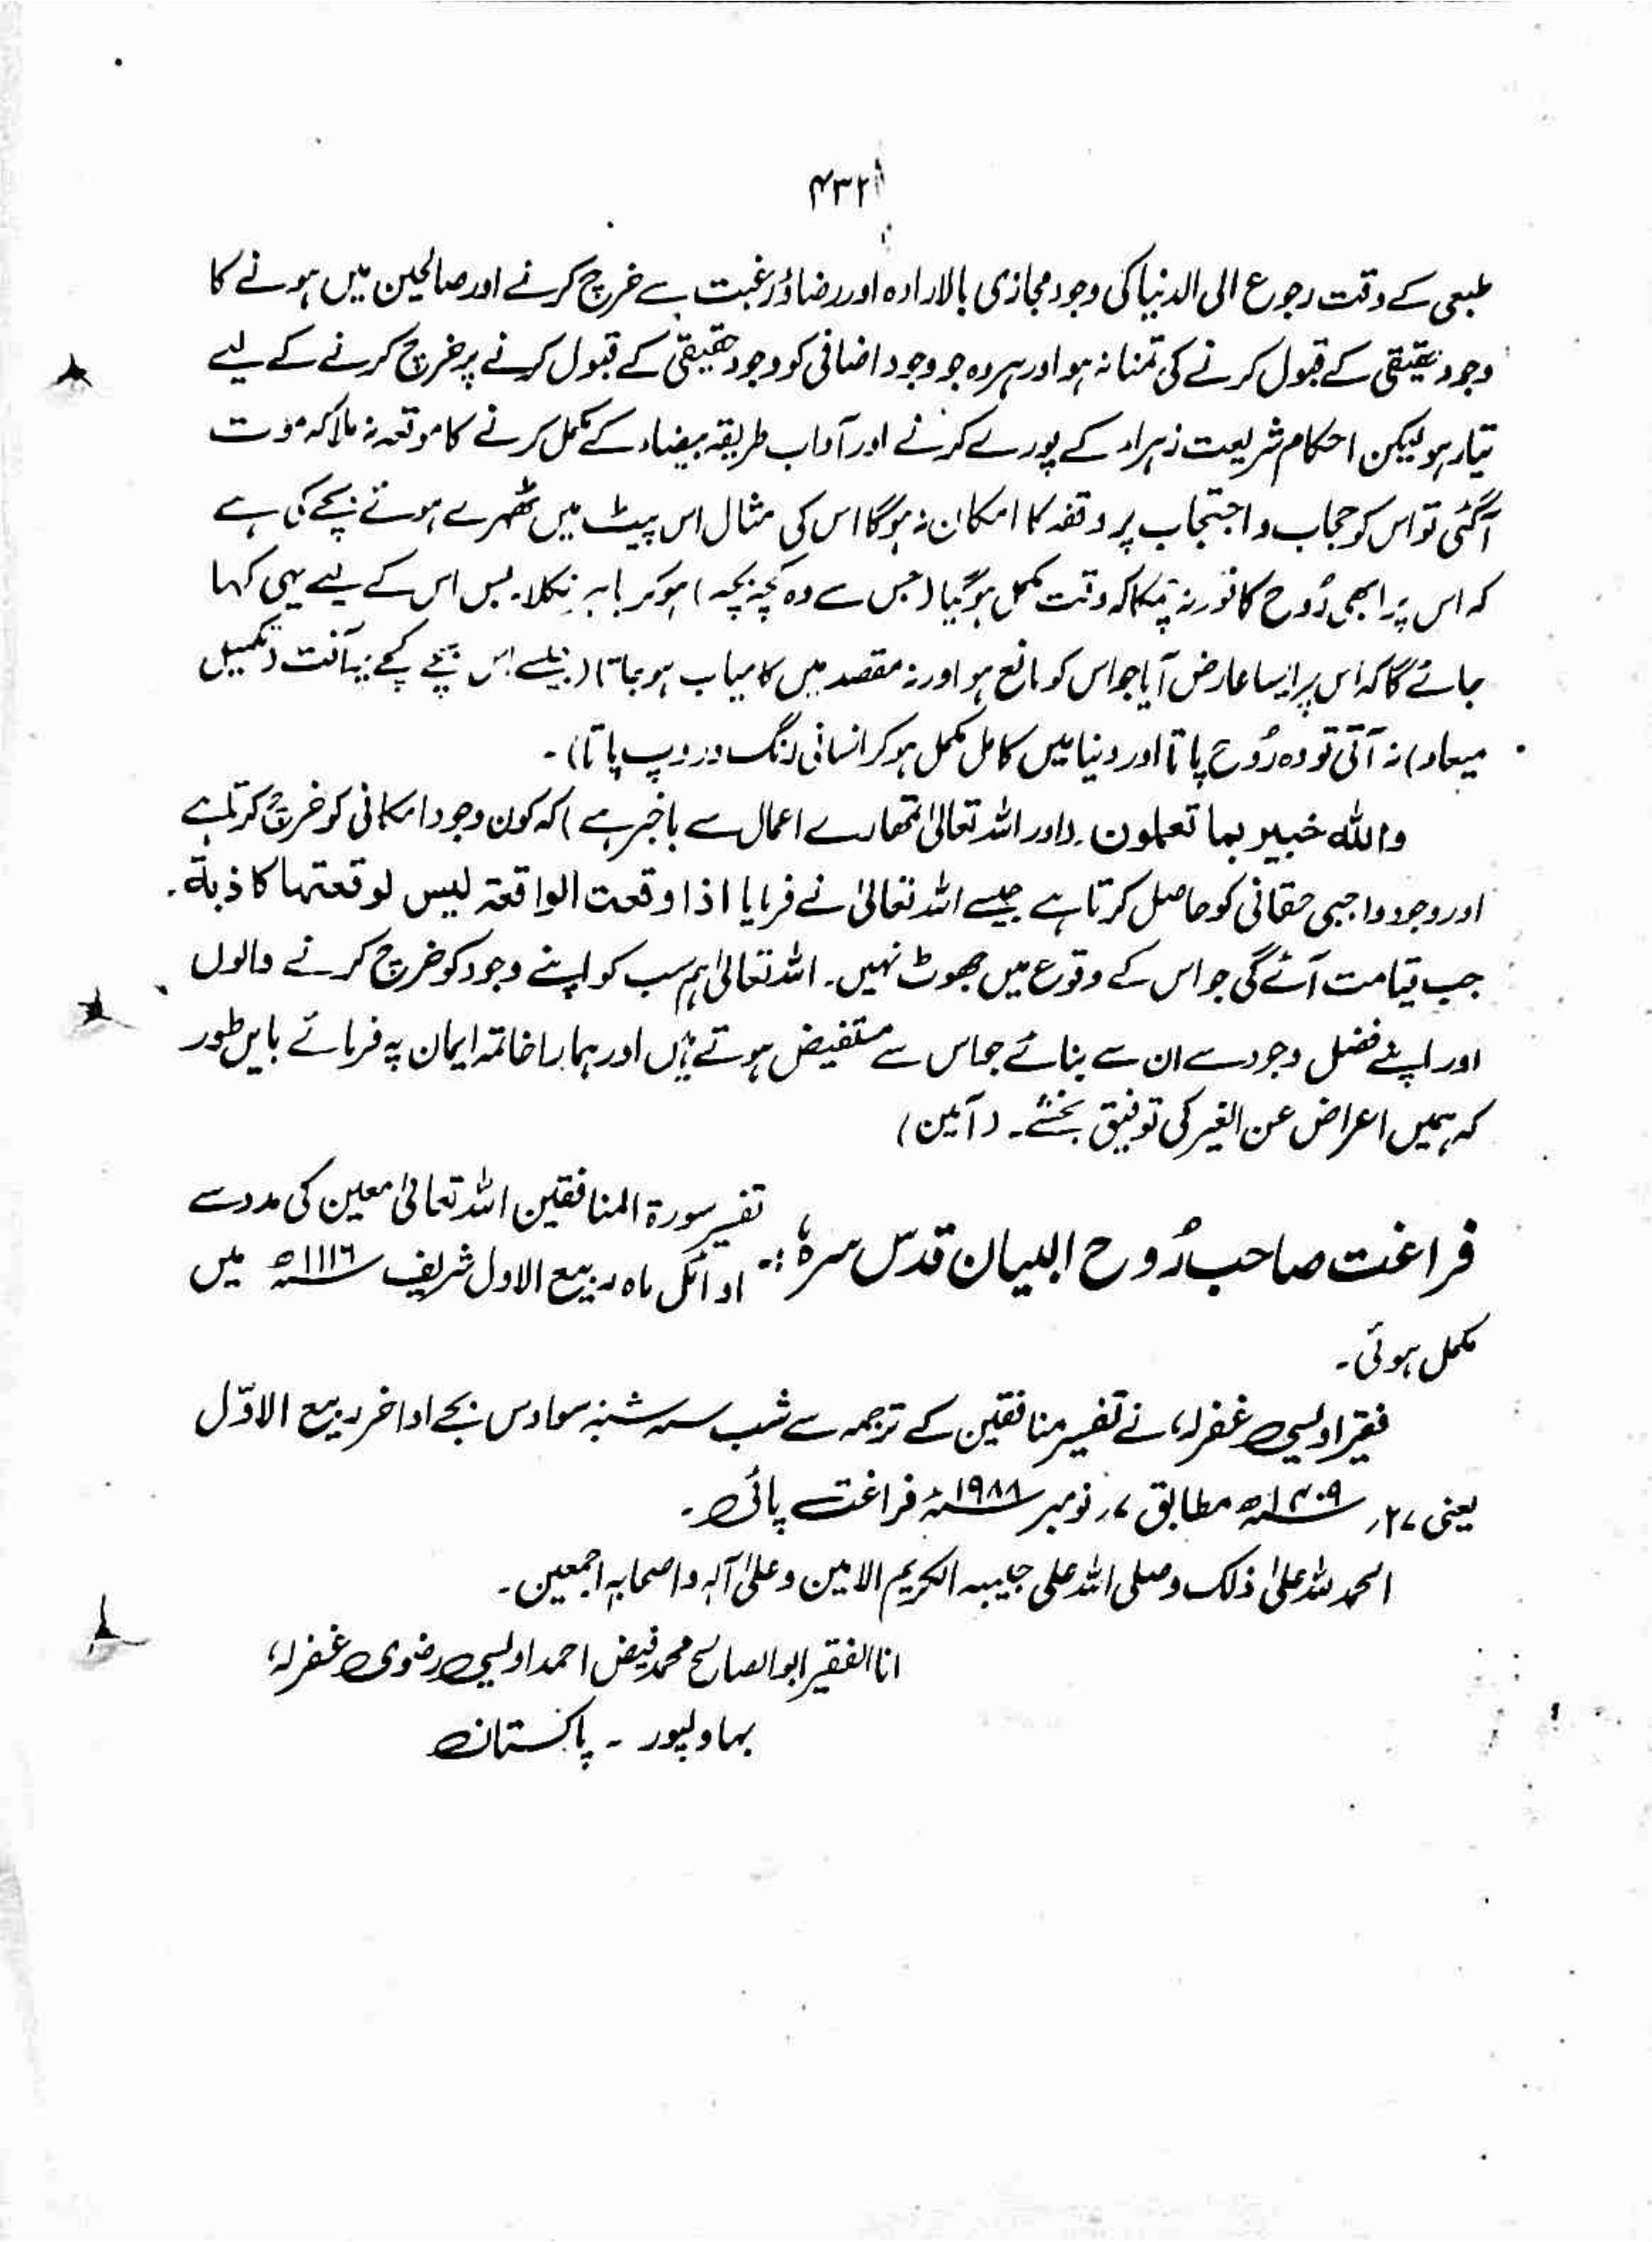 ۴۳۲
طبعی کے وقت رجوع الی الدنیا کی وجود مجازی بالارادہ اور رضاؤ رغبت سے خرچ کرنے اور صالحین میں ہونے کا
وجود حقیقی کے قبول کرنے کی تمنا نہ ہو اور ہر وہ جو وجود اضافی کو وجود حقیقی کے قبول کرنے پر خرچ کرنے کے لیے
تیار ہو لیکن احکام شریعت زہراء کے پورے کرنے اور آداب طریقہ بیضاء کے مکمل کرنے کا موقعہ نہ ملا کہ موت
آگئی تو اس کو حجاب و احتجاب پر وقفہ کا امکان نہ ہوگا اس کی مثال اس پیٹ میں ٹھہرے ہوئے بچے کی ہے
کہ اس پر ابھی رُوح کا نور نہ چمکا کہ وقت مکمل ہوگیا (جس سے وہ کچہ بچہ) ہو کر باہر نکلا۔ بس اس کے لیے یہی کہا
جائے گا کہ اس پر ایسا عارض آیا جو اس کو مانع ہو اور نہ مقصد میں کامیاب ہو جاتا (جیسے اس بچے کچے پہ آفت (تکمیل
میعاد) نہ آتی تو وہ رُوح پاتا اور دنیا میں کامل مکمل ہو کر انسانی رنگ و روپ پاتا)۔
واللہ خبیر بما تعملون۔ (اور اللہ تعالیٰ تمھارے اعمال سے باخبر ہے) کہ کون وجود امکانی کو خرچ کرتا ہے
اور وجود واجبی حقانی کو حاصل کرتا ہے جیسے اللہ تعالیٰ نے فرمایا اذا وقعت الواقعۃ لیس لوقعتھا کاذبۃ۔
جب قیامت آئے گی جو اس کے وقوع میں جھوٹ نہیں۔ اللہ تعالیٰ ہم سب کو اپنے وجود کو خرچ کرنے والوں
اور اپنے فضل وجود سے ان سے بنائے جو اس سے مستفیض ہوتے ہیں اور ہمارا خاتمہ ایمان پہ فرمائے بایں طور
کہ ہمیں اعراض عن الغیر کی توفیق بخشے۔ (آمین)
فراغت صاحب رُوح البیان قدس سرہٗ :۔ تفسیر سورۃ المنافقین اللہ تعالیٰ معین کی مدد سے
اوائل ماہ ربیع الاول شریف ۱۱۱۶ھ میں
مکمل ہوئی۔
فقیر اویسی غفرلہٗ نے تفسیر منافقین کے ترجمہ سے شب سہ شنبہ سوا دس بجے اواخر ربیع الاوّل
یعنی ۲۷ر ۱۴۰۹ھ مطابق ۷ر نومبر ۱۹۸۸ء فراغت پائی۔
الحمد للہ علیٰ ذلک وصلی اللہ علی حبیبہ الکریم الامین وعلیٰ آلہٖ واصحابہٖ اجمعین۔
انا الفقیر ابو الصالح محمد فیض احمد اویسی رضوی غفرلہٗ
بہاولپور ۔ پاکستان